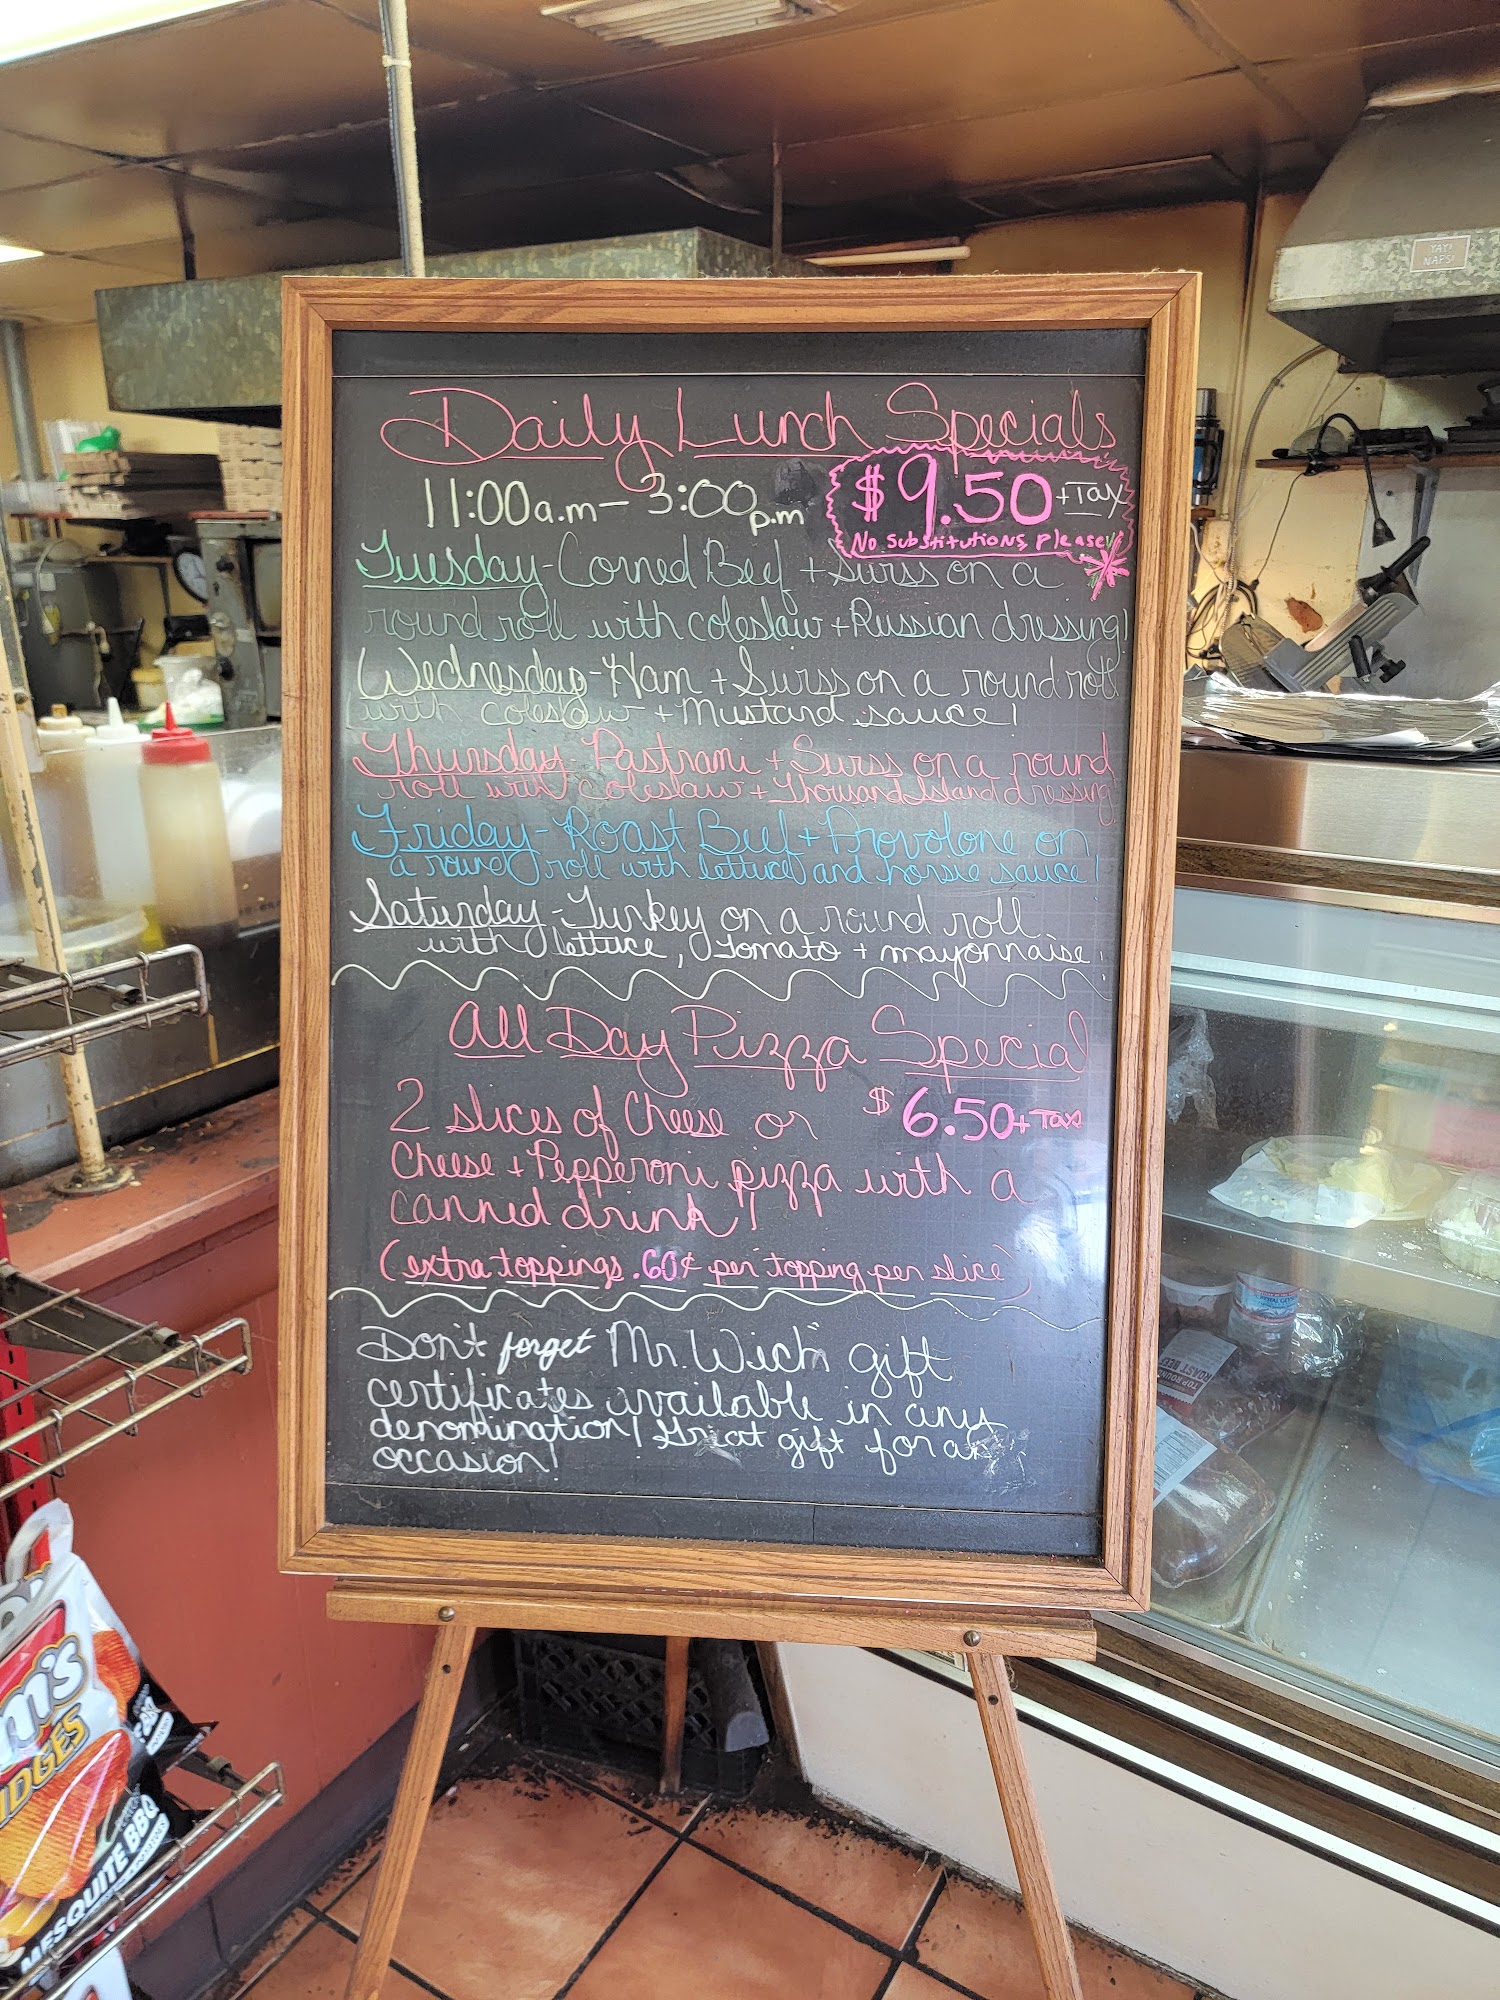 Daily Lunch Specials
11:00a.m - 3:00p.m
$9.50 +Tax
No substitutions, please!
Tuesday - Corned Beef + Swiss on a
round roll with coleslaw + Russian dressing!
Wednesday - Ham + Swiss on a round roll
with coleslaw + Mustard sauce!
Thursday - Pastrami + Swiss on a round
roll with coleslaw + Thousand Island dressing
Friday - Roast Beef + Provolone on
a round roll with lettuce and horsie sauce!
Saturday - Turkey on a round roll
with lettuce, Tomato + mayonnaise!
All Day Pizza Special
2 slices of Cheese or $6.50 + Tax
Cheese + Pepperoni pizza with a
canned drink!
(extra toppings .60¢ per topping per slice)
Don't forget "Mr. Wich" gift
certificates available in any
denomination! Great gift for an
occasion!
YAY!
NAPS!
TOP ROUND
ROAST BEEF
MESQUITE BBQ